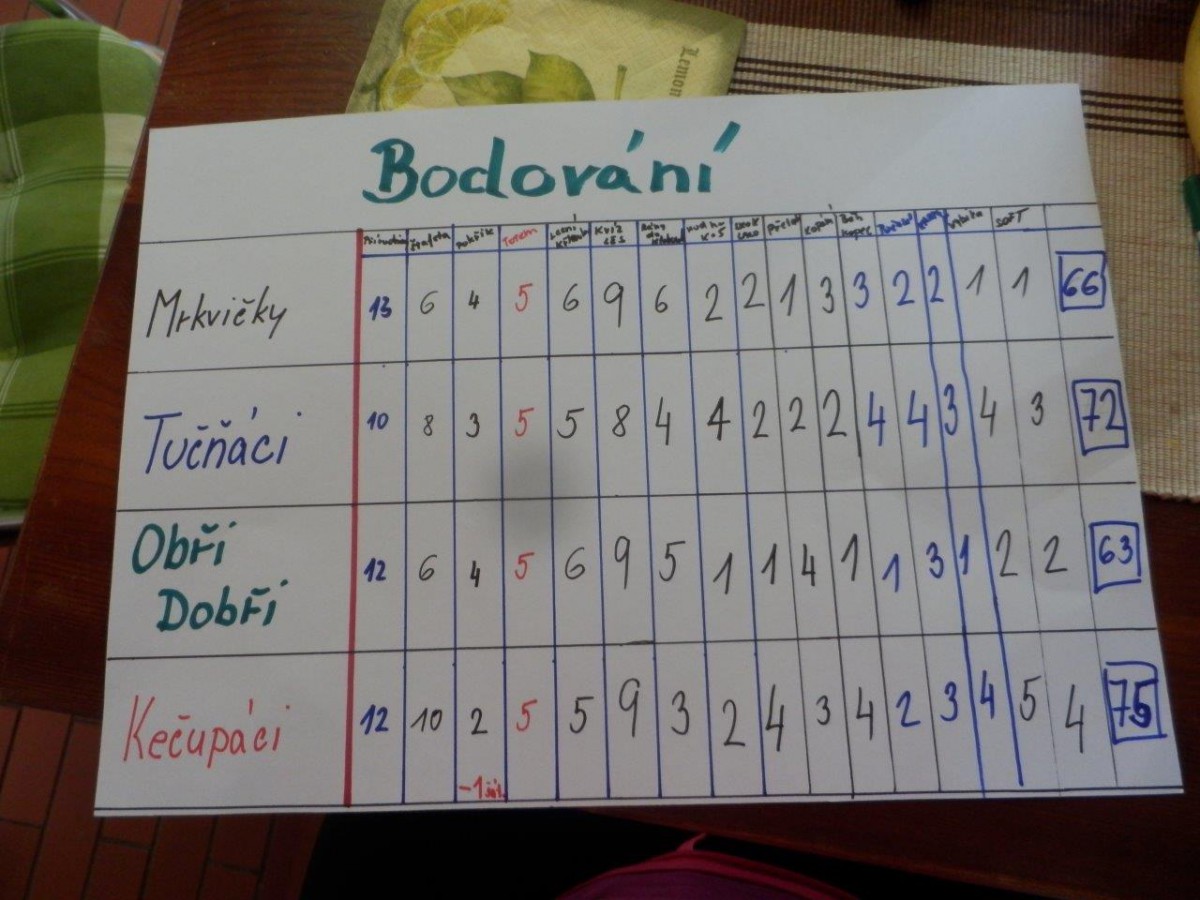 Lemon
Bodování
Štafeta Totem Kvíz přelet kopaná Běh vybika SOFT
LES kopec
Mrkvičky 13 6 4 5 6 9 6 2 2 1 3 3 2 2 1 1 66
Tučňáci 10 8 3 5 5 8 4 4 2 2 2 4 4 3 4 3 72
Obří 12 6 4 5 6 9 5 1 1 4 1 1 3 1 2 2 63
Dobří
Kečupáci 12 10 2 5 5 9 3 2 4 3 4 2 3 4 5 4 75
-1